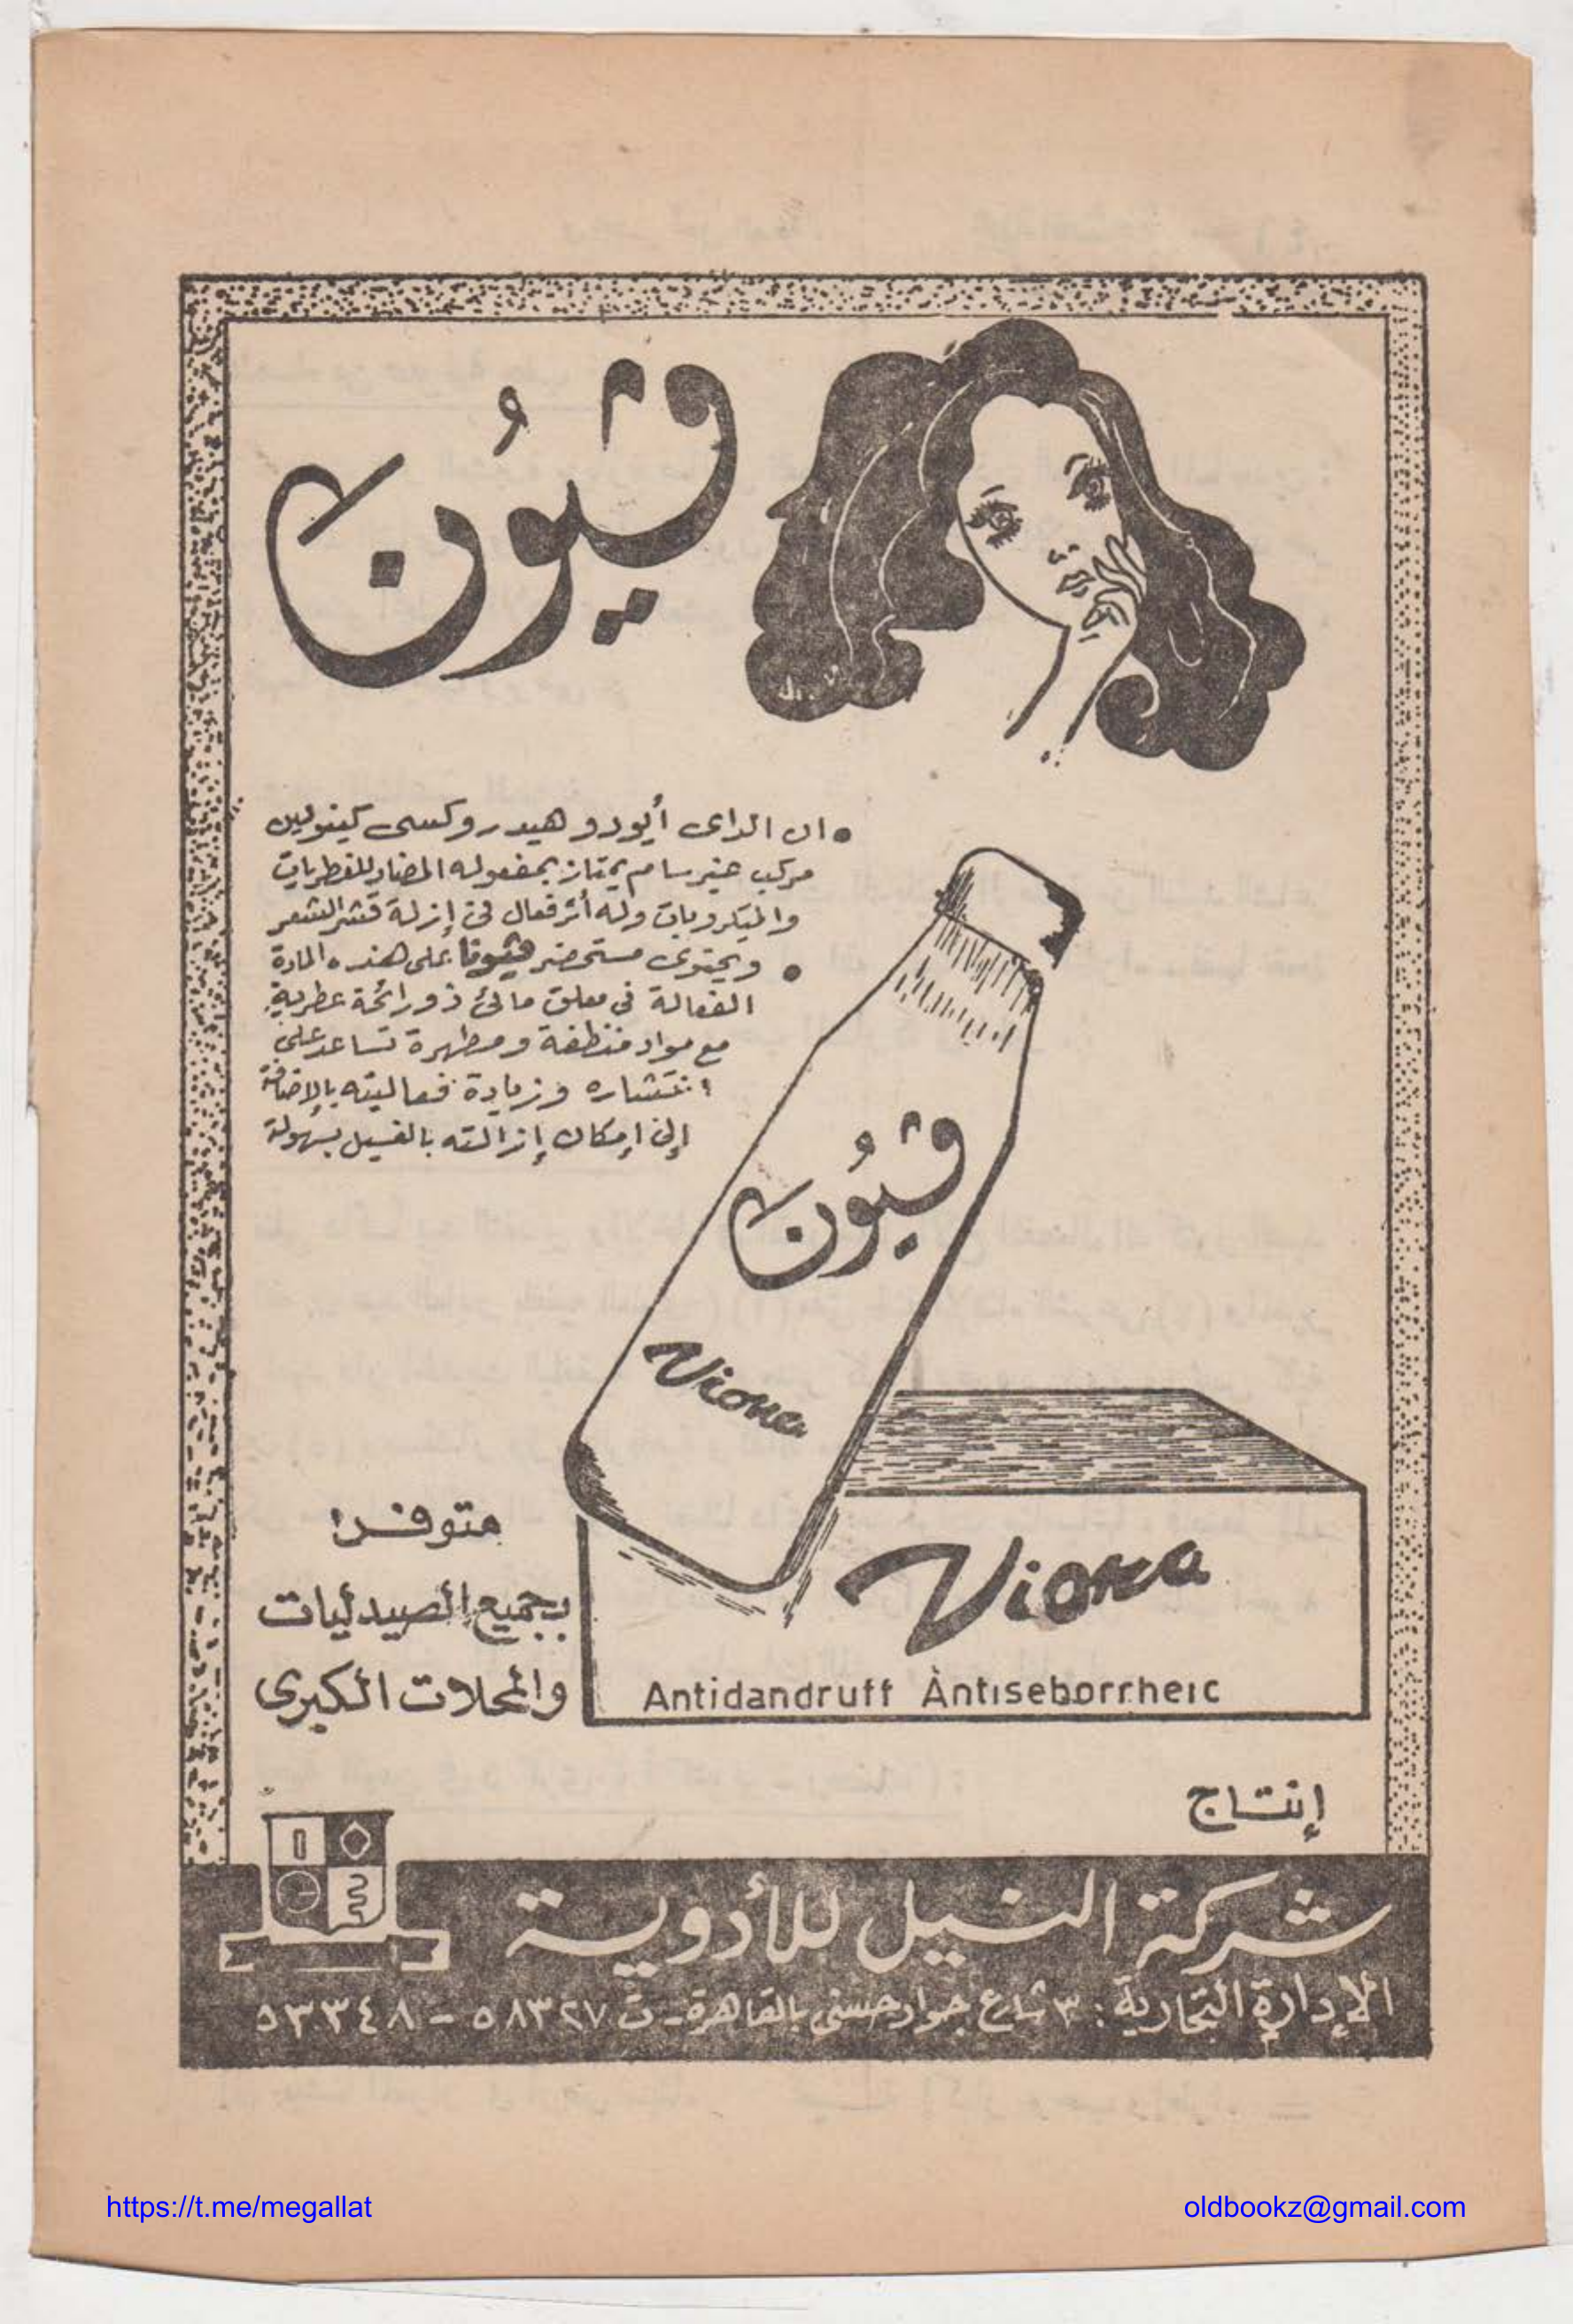 ڤيونا
• ان الداى أيودو هيدروكسى كينولين
مركب غير سام يمتاز بمفعوله المضاد للفطريات
والميكروبات وله أثر فعال فى إزلة قشر الشعر
• ويحتوى مستحضر ڤيونا على هذه المادة
الفعالة فى معلق مائى ذو رائحة عطرية
مع مواد منظفة ومطهرة تساعد على
انتشاره وزيادة فعاليته بالاضافة
إلى إمكان إزالته بالغسيل بسهولة
ڤيونا
Viona
متوفر:
بجميع الصيدليات
والمحلات الكبرى
Viona
Antidandruff Antiseborrheic
إنتاج
شركة النيل للأدوية
الإدارة التجارية: ٣ شارع جواد حسنى بالقاهرة - ت ٥٨٣٢٧ - ٥٣٣٤٨
https://t.me/megallat
oldbookz@gmail.com